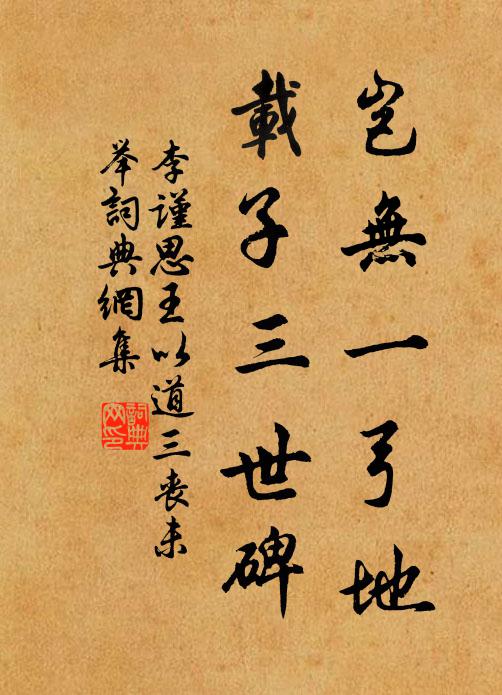 豈無一弓地
載子三世碑
李謹思王以道三喪未
举詞典網集
詞典網印